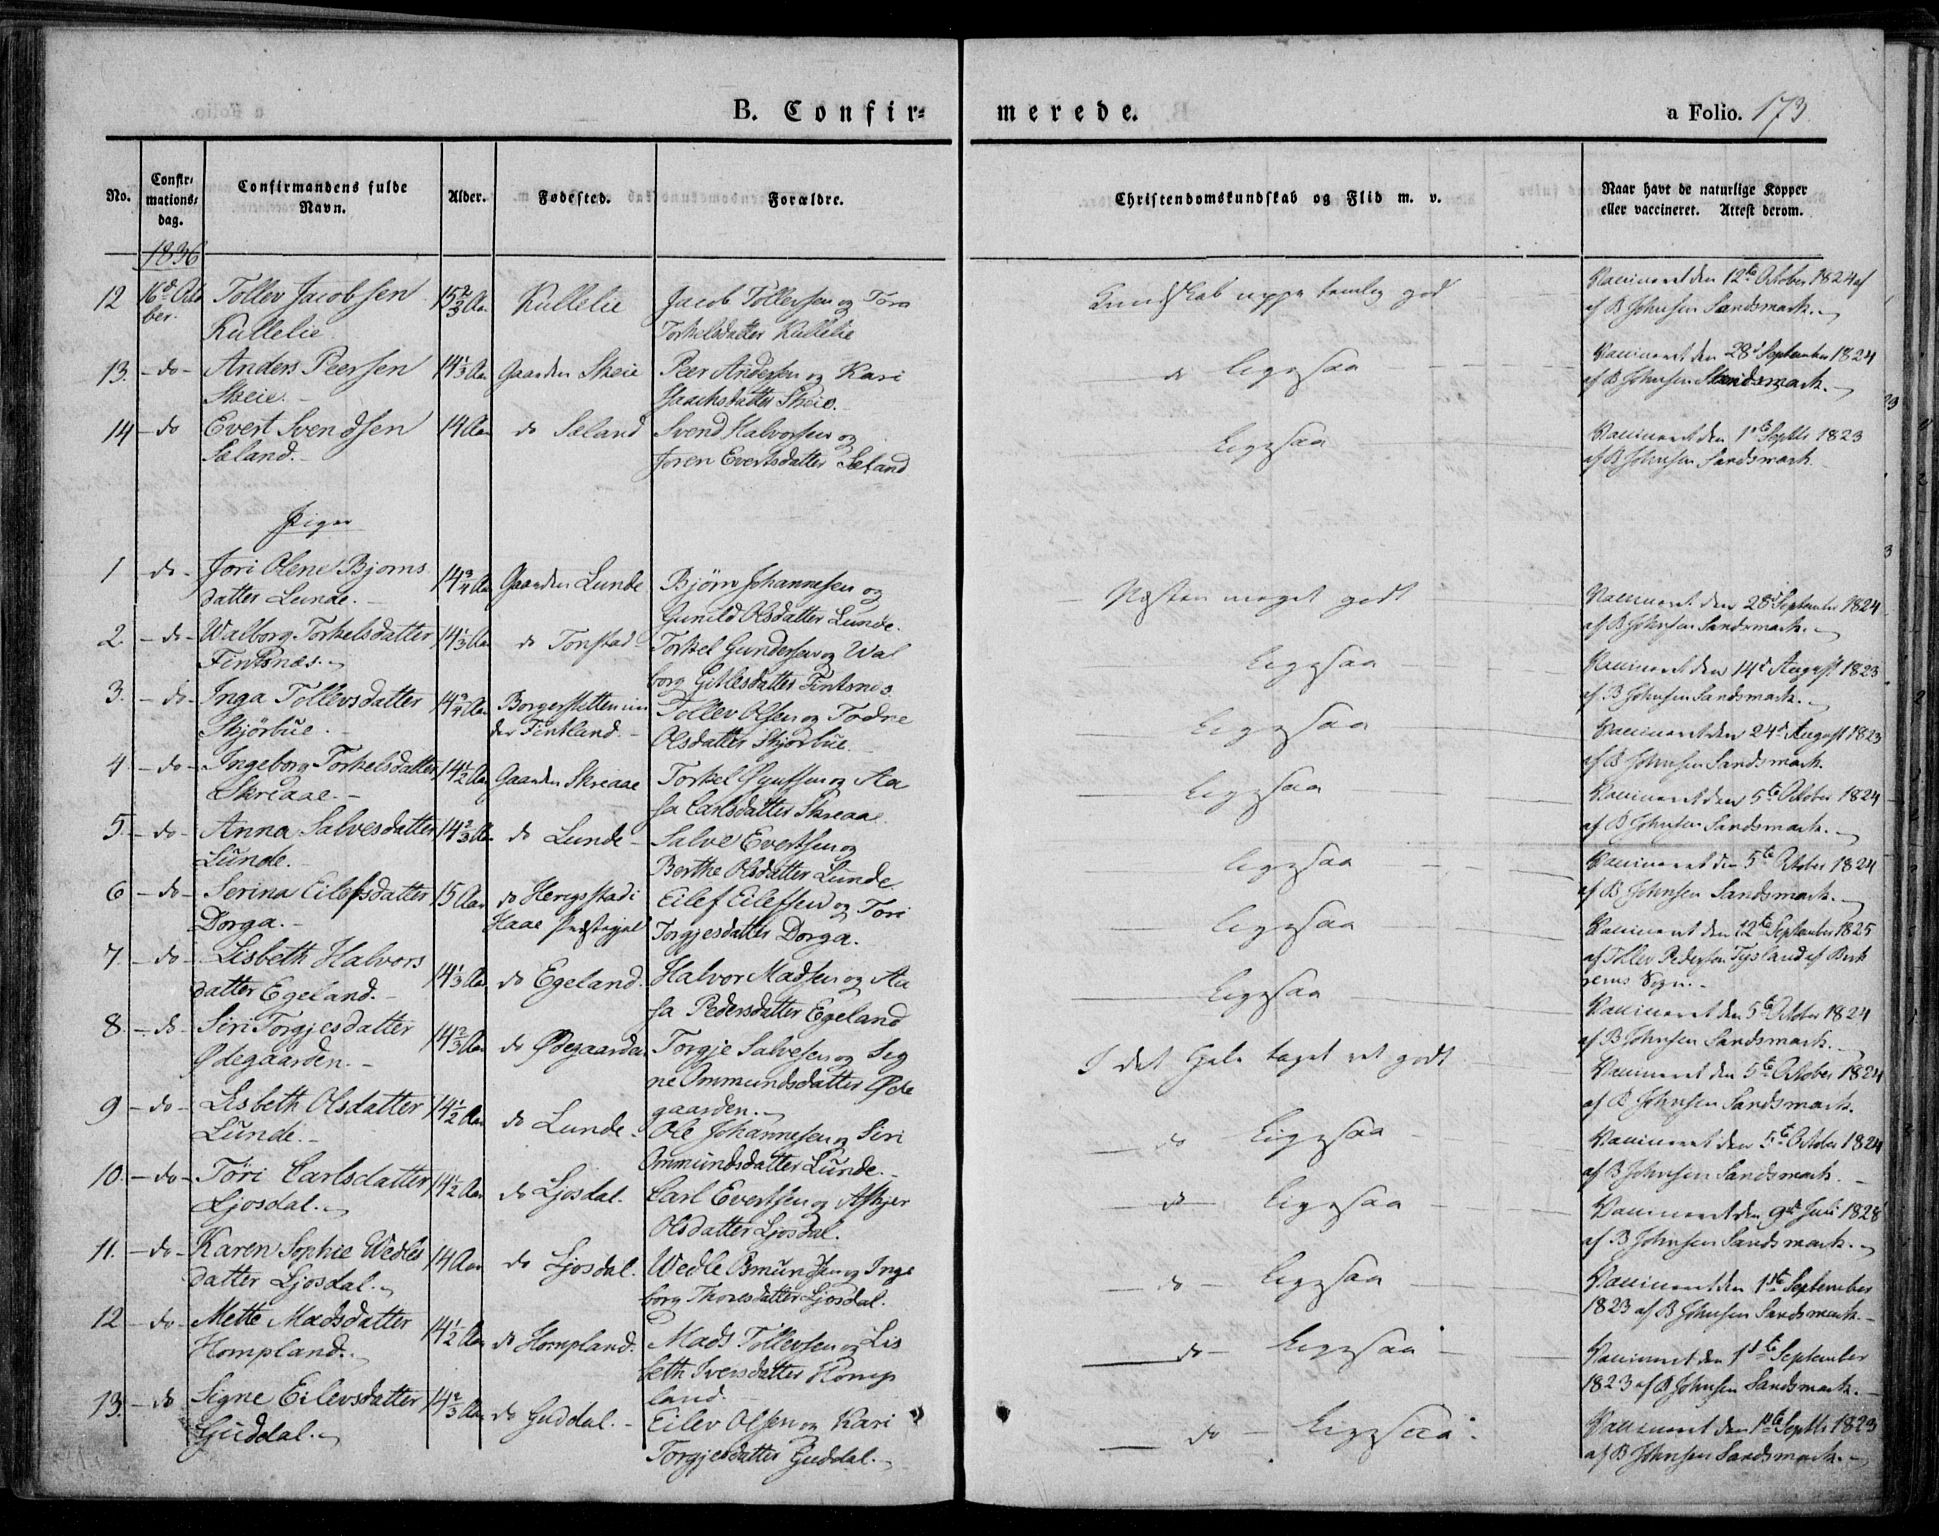 B. Confir=
merede.
a Folio. 173.
No.
Confir=
mations=
dag.
Confirmandens fulde
Navn.
Alder.
Fødested.
Forældre.
Christendomskundskab og Flid m. v.
Naar havt de naturlige Kopper
eller vaccineret. Attest derom.
1836
12 16de Octo Tollev Jacobsen 15 2/3 Aar Kullelie Jacob Tollevsen og Tora Kundskab temlig god Vaccineret den 12te October 1824 af
ber. Kullelie Torkelsdatter Kullelie af B Johnsen Sandsmark.
13. - do - Anders Peersen 14 1/3 Aar Gaarden Skeie Peer Andersen og Kari do ligesaa Vaccineret den 28d September 1824
Skeie. - Isaachsdatter Skeie. af B Johnsen Sandsmark.
14 - do Evert Svendsen 14 Aar do Sæland Svend Halvorsen og ligesaa Vaccineret den 1te Septbr 1823
Sæland. - Joren Evertsdatter Sæland af B Johnsen Sandsmark.
Piger
1 - do - Jori Olene Bjorns 14 3/4 Aar Gaarden Lunde Bjørn Johannesen og Næsten meget godt Vaccineret den 28d September 1824
datter Lunde. - Gunild Olsdatter Lunde. af B Johnsen Sandsmark.
2. - do - Walborg Torkelsdatter 14 1/3 Aar do Tonstad Torkel Gundersen og Wal ligesaa Vaccineret den 14d August 1823
Fintsnæs. borg Gitlesdatter Fintsnes af B Johnsen Sandsmark.
3. - do - Inga Tollevsdatter 14 3/4 Aar Borgerstetten un Tollev Olsen og Todne ligesaa Vaccineret den 24d August 1823
Skjørbue. der Fintland. - Olsdatter Skjørbue. af B Johnsen Sandsmark.
4 - do - Ingeborg Torkelsdatter 14 1/2 Aar Gaarden Skreaae Torkel og Aa ligesaa Vaccineret den 5te October 1824
Skreaae. - sa Carlsdatter Skreaae. af B Johnsen Sandsmark.
5 - do - Anna Salvesdatter 14 2/3 Aar do Lunde - Salve Evertsen og ligesaa Vaccineret den 5te October 1824
Lunde. Berthe Olsdatter Lunde af B Johnsen Sandsmark.
6 - do - Serina Eilefsdatter 15 Aar do Herigstad i Eilef Eilefsen og Tori ligesaa Vaccineret den 12te September 1825
Dorga. - Haae Præstegjel Torgjesdatter Dorga. af Tollev Pedersen Tysland af Birk
7. - do - Lisbeth Halvors 14 1/3 Aar do Egeland. Halvor Madsen og Aa ligesaa rems Sogn. -
datter Egeland. - sa Pedersdatter Egeland Vaccineret den 5te October 1824
8. - do - Siri Torgjesdatter 14 2/3 Aar do Ødegaarden Torgje Salvesen og Sig I det Hele taget ret godt af B Johnsen Sandsmark.
Ødegaarden. - ne Ommundsdatter Øde Vaccineret den 5te October 1824
gaarden. af B Johnsen Sandsmark.
9 - do - Lisbeth Olsdatter 14 1/2 Aar do Lunde. Ole Johannesen og Siri do ligesaa Vaccineret den 5te October 1824
Lunde. - Ommundsdatter Lunde. - af B Johnsen Sandsmark.
10. - do - Tøri Carlsdatter 14 1/2 Aar do Ljosdal. Carl Evertsen og Askjer do ligesaa Vaccineret den 9de Juli 1828
Ljosdal. Olsdatter Ljosdal. af B Johnsen Sandsmark.
11. - do - Karen Sophie Wedles 14 Aar do Ljosdal. Wedle Osmundsen og Inge do - ligesaa Vaccineret den 1ste September
datter Ljosdal. borg Thoresdatter Ljosdal. 1823 af B Johnsen Sandsmark.
12 - do - Mette Madsdatter 14 1/2 Aar do Hompland. Mads Tollevsen og Lis do - ligesaa Vaccineret den 1ste September
Hompland. beth Iversdatter Homp 1823 af B Johnsen Sandsmark.
land.
13. - do Signe Eilevsdatter 14 2/3 Aar do Guddal. - Eilev Olsen og Kari do - ligesaa Vaccineret den 1ste Septbr 1823
Guddal. Torgjesdatter Guddal. af B Johnsen Sandsmark.